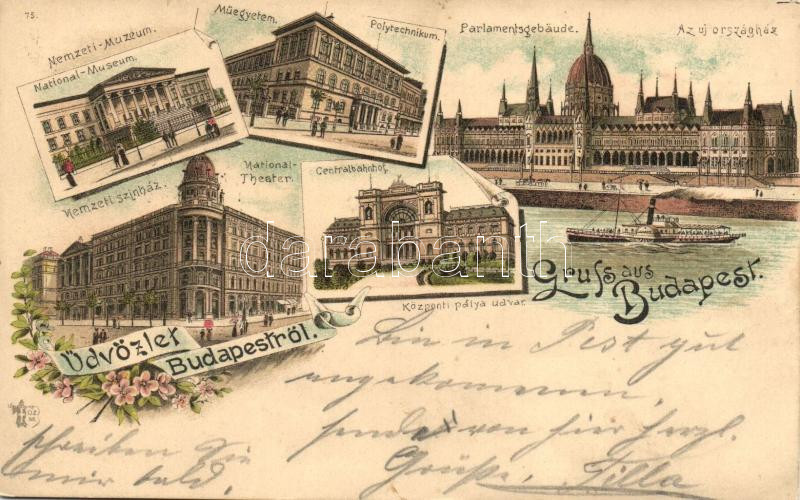 75.
Nemzeti-Muzeum.
National-Museum.
Műegyetem.
Polytechnikum.
Parlamentsgebäude.
Az uj országház
Nemzeti szinház.
National-
Theater.
Centralbahnhof.
Központi pálya udvar.
Gruss aus
Budapest.
Üdvözlet
Budapestről.
darabanth.com
Bin in Pest gut
angekommen,
sende von hier herzl.
Grüße, Tilla
schreiben Sie
mir bald,